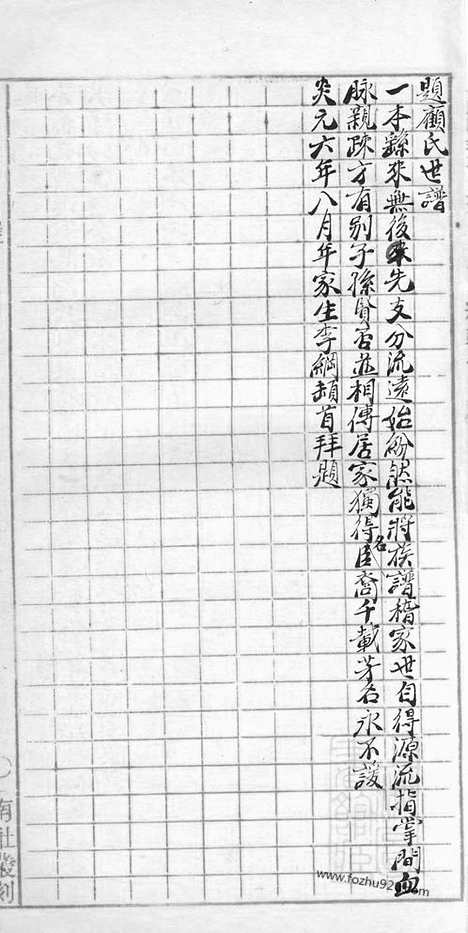 題顧氏世譜
一本繇來無後先支分流遠始紛然能將族譜稽家世自得源流指掌間血
脉親疎方有別子孫賢否並相傳居家獨得名臣裔千載芳名永不諼
炎元六年八月年家生李綱頓首拜題
南社叢刻
www.fozhu92
m